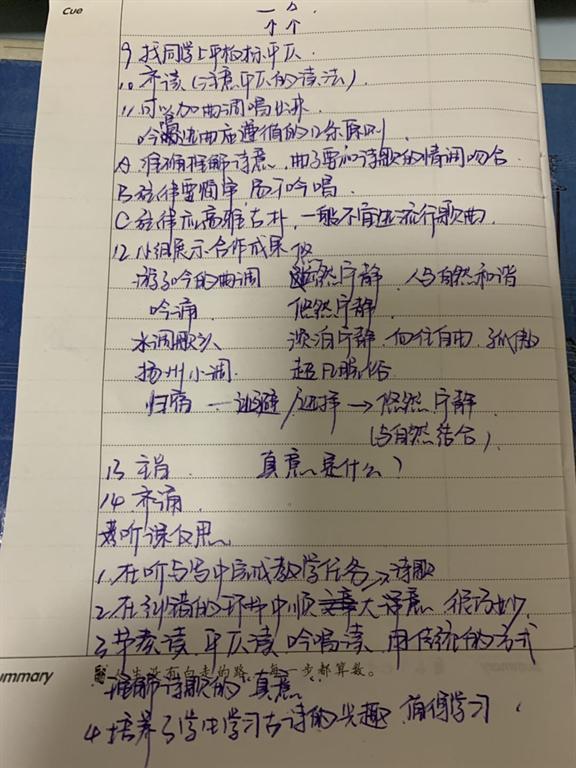 Cue
个个
9. 找同学上平板标平仄.
10. 齐读 (注意平仄的读法).
11. 可以加曲调唱出来
吟唱选曲应遵循的 原则
A. 准确理解诗意, 曲子要和诗歌的情调吻合
B 旋律要简单, 便于吟唱.
C 旋律应高雅古朴, 一般不宜选流行歌曲.
12. 小组展示合作成果
游子吟的曲调 悠然宁静 人与自然和谐
吟诵 悠然宁静.
水调歌头 淡泊宁静, 向往自由, 孤傲
扬州小调 超凡脱俗
归宿 — 逃避/选择 → 悠然宁静.
(与自然结合)
13. 主旨 真意是什么?
14. 齐诵.
听课反思
1. 在听与写中完成教学任务→诗歌
2. 在纠错的环节中顺 大译意 很巧妙.
3. 节奏读、平仄读、吟唱读, 用传统的方式
ummary 人生没有白走的路, 每一步都算数。
理解诗歌的真意
4. 培养了学生学习古诗的兴趣 值得学习